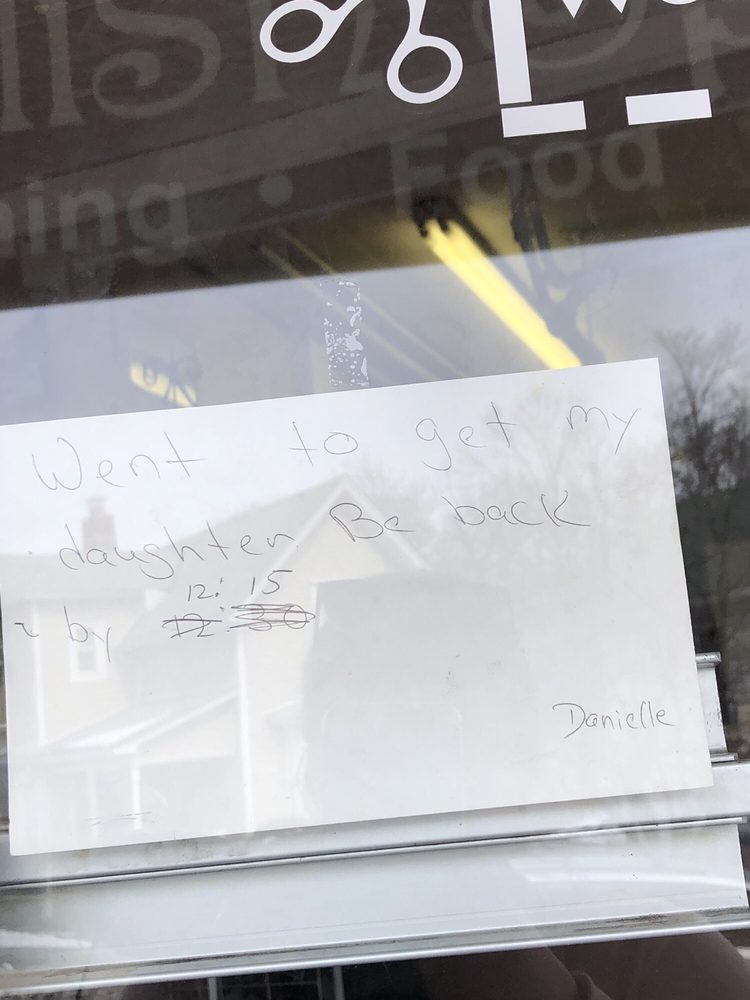 ing • Food
Went to get my
daughter. Be back
12:15
~ by 12:30
Danielle